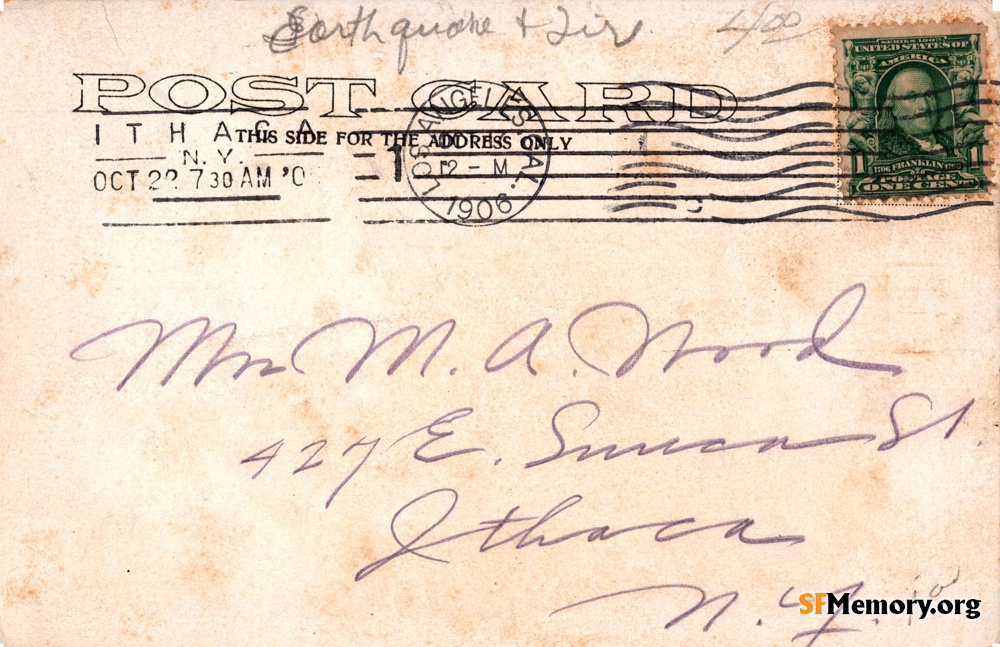 Earthquake + Fire
4/00
POST CARD
THIS SIDE FOR THE ADDRESS ONLY
ITHACA
N.Y.
OCT 22 7 30 AM '0
1
LOS ANGELES CAL.
12 - M
1906
SERIES 1902
UNITED STATES OF
AMERICA
FRANKLIN
1 1
ONE CENT
Mrs M. A. Wood
427 E. Seneca St.
Ithaca
N. Y.
SFMemory.org